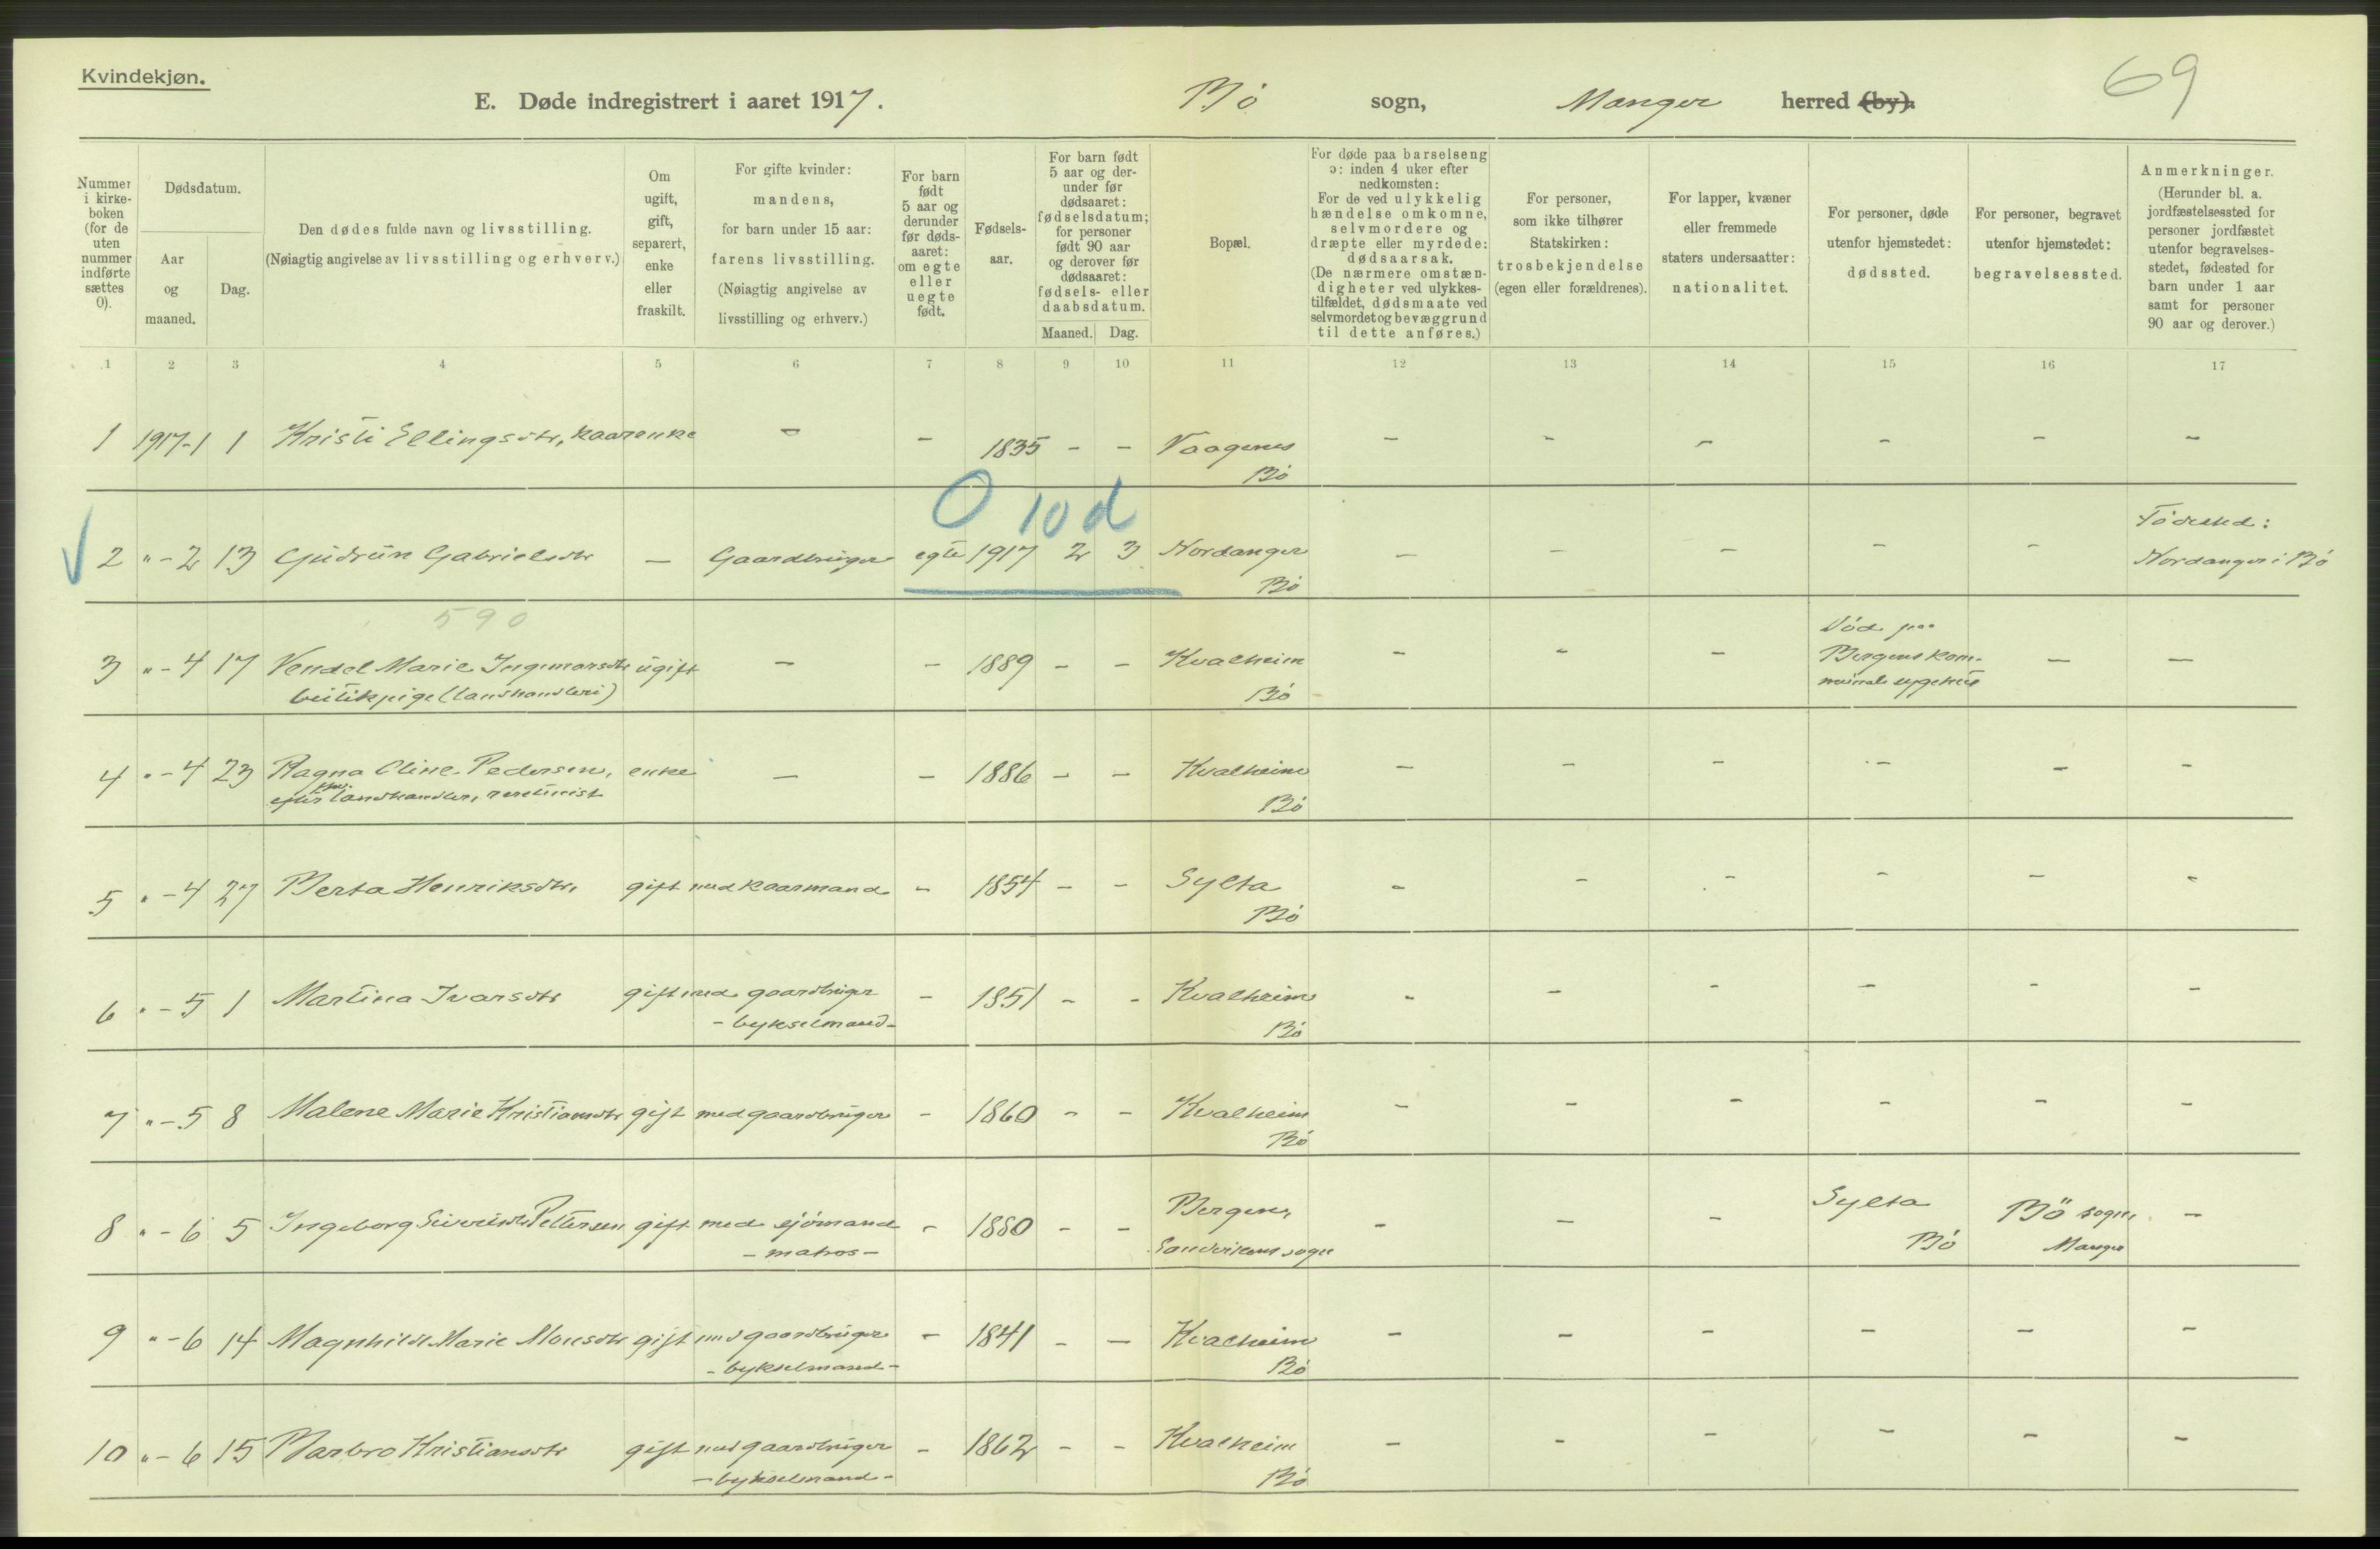 Kvindekjøn.
69
E. Døde indregistrert i aaret 1917. Bö sogn, Manger herred (by).
Nummer i kirke- boken (for de uten nummer indførte sættes 0).
Dødsdatum.
Aar og maaned.
Dag.
Den dødes fulde navn og livsstilling.
(Nøiagtig angivelse av livsstilling og erhverv.)
Om ugift, gift, separert, enke eller fraskilt.
For gifte kvinder: mandens, for barn under 15 aar: farens livsstilling.
(Nøiagtig angivelse av livsstilling og erhverv.)
For barn født 5 aar og derunder før døds- aaret: om egte eller uegte født.
Fødsels- aar.
For barn født 5 aar og der- under før dødsaaret: fødselsdatum; for personer født 90 aar og derover før dødsaaret: fødsels- eller daabsdatum.
Maaned. Dag.
Bopæl.
For døde paa barselseng ɔ: inden 4 uker efter nedkomsten: For de ved ulykkelig hændelse omkomne, selvmordere og dræpte eller myrdede: dødsaarsak.
(De nærmere omstæn- digheter ved ulykkes- tilfældet, dødsmaate ved selvmordet og bevæggrund til dette anføres.)
For personer, som ikke tilhører Statskirken: trosbekjendelse (egen eller forældrenes).
For lapper, kvæner eller fremmede staters undersaatter: nationalitet.
For personer, døde utenfor hjemstedet: dødssted.
For personer, begravet utenfor hjemstedet: begravelsessted.
Anmerkninger.
(Herunder bl. a. jordfæstelsessted for personer jordfæstet utenfor begravelses- stedet, fødested for barn under 1 aar samt for personer 90 aar og derover.)
1 2 3 4 5 6 7 8 9 10 11 12 13 14 15 16 17
1 1917-1 1 Kristi Ellingsdtr, kaarenke - - 1835 - - Vaagenes - - - - - -
Bö
0 10 d
2 " - 2 13 Gudrun Gabrielsdtr - Gaardbruger egte 1917 2 3 Nordanger - - - - - Födested:
Bö Nordanger i Bö
590
3 " - 4 17 Vendel Marie Ingemarsdtr ugift - - 1889 - - Kvalheim - - - Död paa - -
butikpige (landhandleri) Bö Bergens kom-
munale sygehus
4 " - 4 23 Ragna Oline Pedersen, enke - - 1886 - - Kvalheim - - - - - -
efter landhandler, Bö
5 " - 4 27 Berta Henriksdtr gift med kaarmand - 1854 - - Sylta - - - - - -
Bö
6 " - 5 1 Martina Ivarsdtr gift med gaardbruger - 1851 - - Kvalheim - - - - - -
- bykselmand - Bö
7 " - 5 8 Malene Marie Kristiansdtr gift med gaardbruger - 1860 - - Kvalheim - - - - - -
Bö
8 " - 6 5 Ingeborg Pettersen gift med sjömand - 1880 - - Bergen, - - - Sylta Bö sogn, -
- matros - Sandvikens sogn Bö Manger
9 " - 6 14 Magnhild Marie Monsdtr gift med gaardbruger - 1841 - - Kvalheim - - - - - -
- bykselmand - Bö
10 " - 6 15 Barbro Kristiansdtr gift med gaardbruger - 1862 - - Kvalheim - - - - - -
- bykselmand - Bö